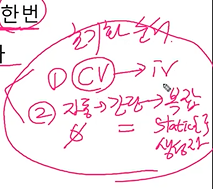 한번
초기화 순서
① CV → iv
② 자동 → 간단 → 복잡
∅ = static{}
생성자